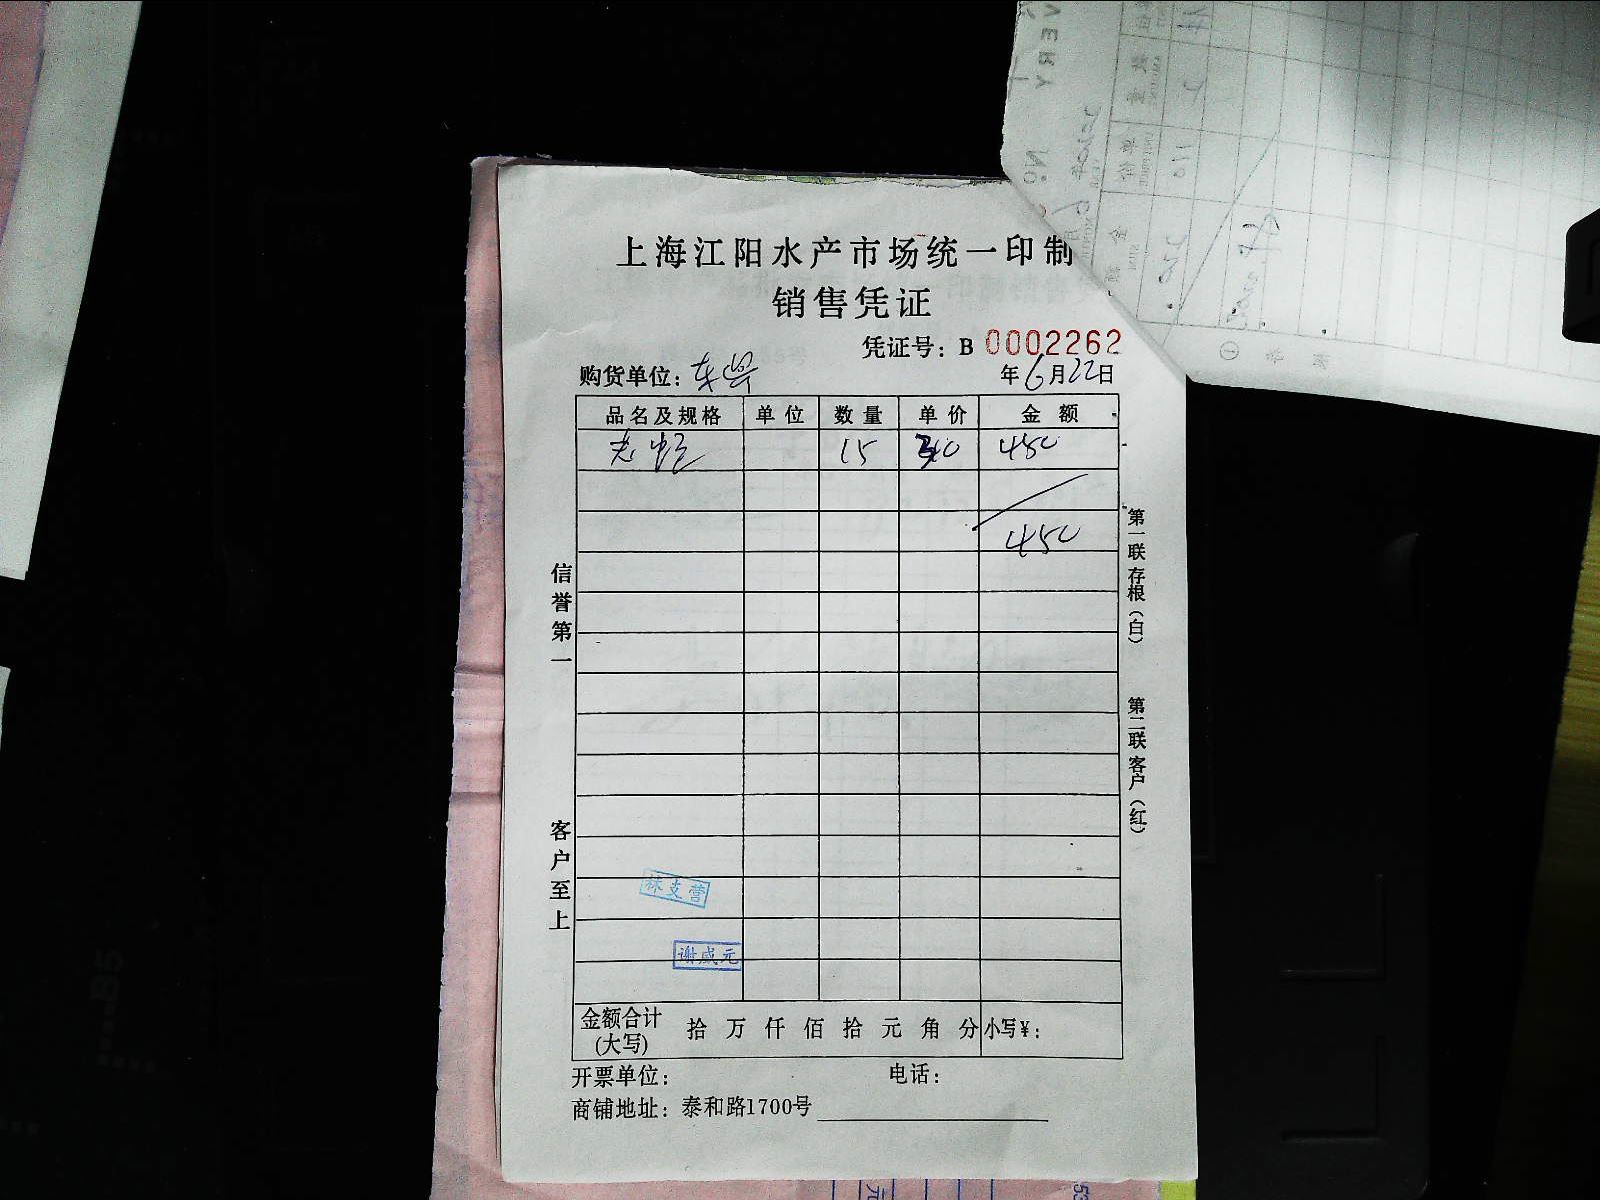 上海江阳水产市场统一印制
销售凭证
凭证号：B 0002262
购货单位：
年6月22日
品名及规格 单位 数量 单价 金额
15 30 450
450
信誉第一
客户至上
第一联存根（白）
第二联客户（红）
林支营
谢成元
金额合计(大写) 拾 万 仟 佰 拾 元 角 分 小写¥：
开票单位： 电话：
商铺地址：泰和路1700号